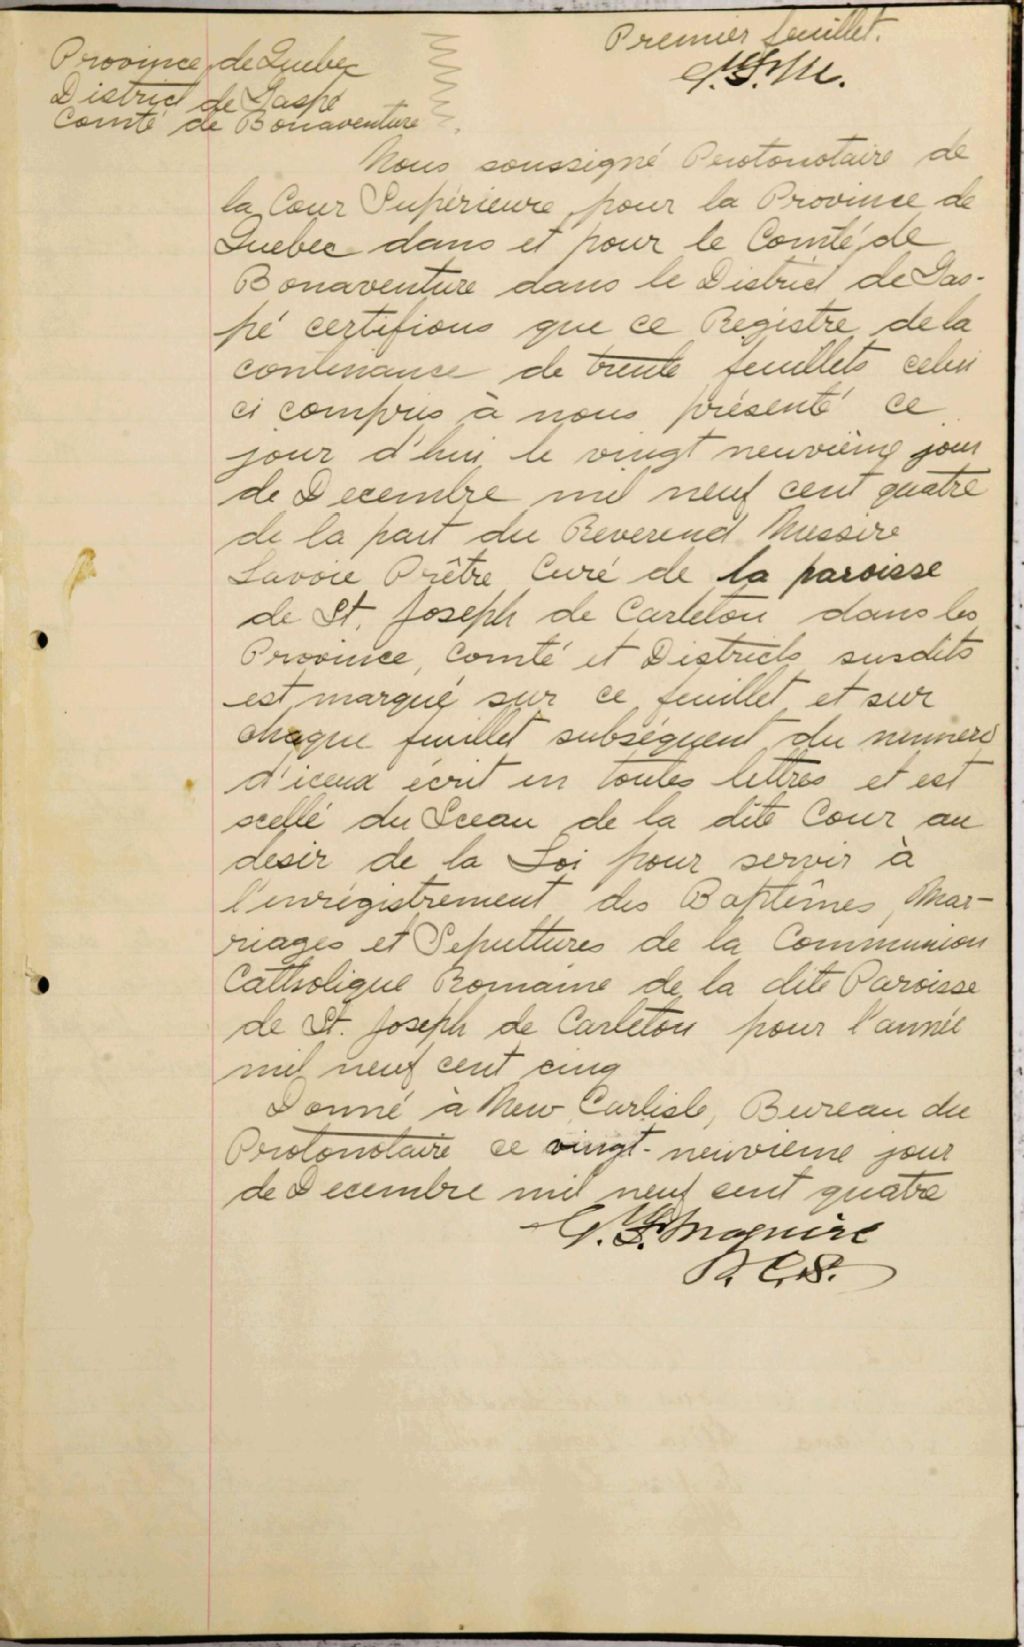 Premier feuillet.
G.S.M.
Province de Quebec
District de Gaspé
Comté de Bonaventure
Nous soussigné Protonotaire de
la Cour Supérieure pour la Province de
Quebec dans et pour le Comté de
Bonaventure dans le District de Gas-
pé certifions que ce Régistre de la
contenance de trente feuillets celui
ci compris à nous présenté ce
jour d'hui le vingt neuvième jour
de Decembre mil neuf cent quatre
de la part du Reverend Messire
Lavoie Prêtre Curé de la paroisse
de St. Joseph de Carleton dans les
Province, Comté et Districts susdits
est marqué sur ce feuillet et sur
chaque feuillet subséquent du numero
d'iceux écrit en toutes lettres et est
scellé du Sceau de la dite Cour au
desir de la Loi pour servir à
l'enrégistrement des Baptêmes, Mar-
riages et Sepultures de la Communion
Catholique Romaine de la dite Paroisse
de St. Joseph de Carleton pour l'année
mil neuf cent cinq
Donné à New Carlisle, Bureau du
Protonotaire ce vingt-neuvieme jour
de Decembre mil neuf cent quatre
Maguire
P.C.S.